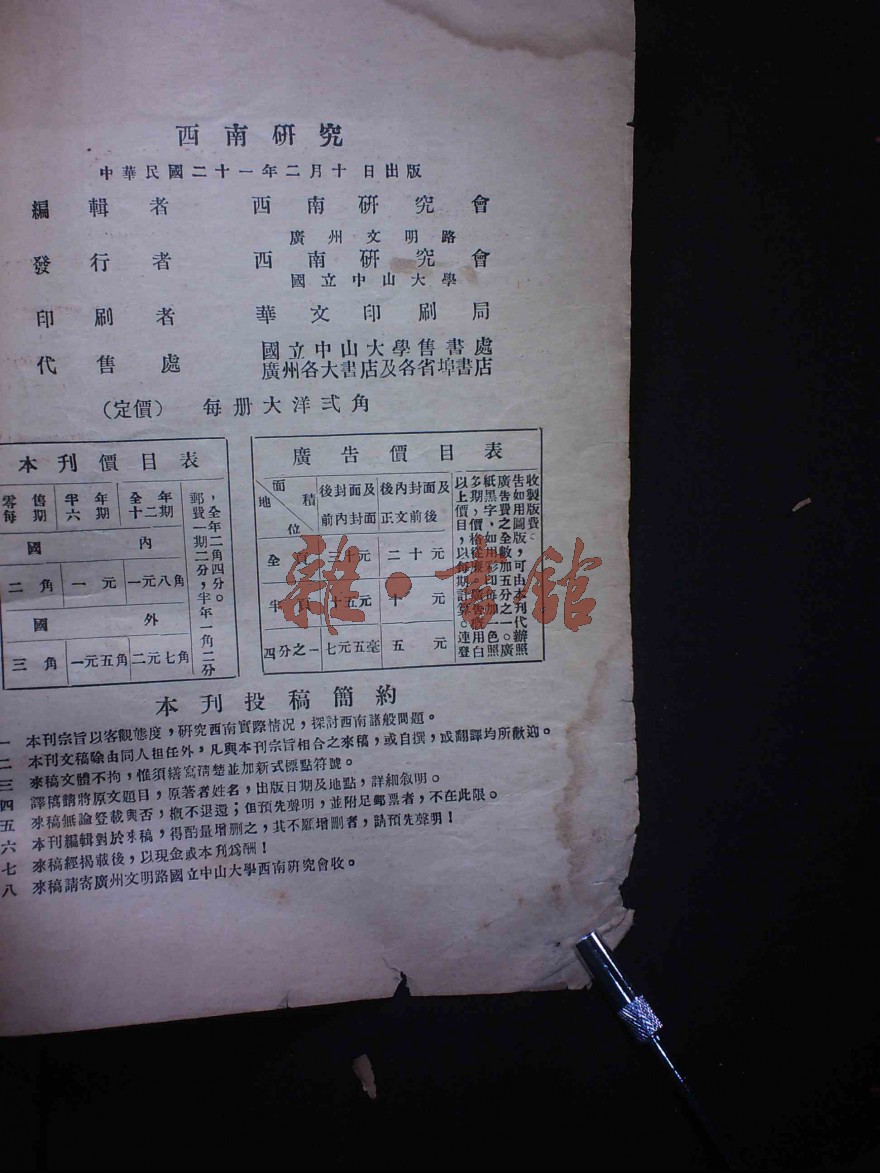 西南研究
中華民國二十一年二月十日出版
編輯者 西南研究會
廣州文明路
發行者 西南研究會
國立中山大學
印刷者 華文印刷局
代售處 國立中山大學售書處
廣州各大書店及各省埠書店
(定價) 每册大洋弍角
本刊價目表
零售每期 半年六期 全年十二期
國內
二角 一元 一元八角
國外
三角 一元五角 二元七角
郵費一期二分,半年一角二分
,全年二角四分。
廣告價目表
面積 地位 後封面及前內封面 後內封面及正文前後
全頁 三十元 二十元
半頁 十五元 十元
四分之一 七元五毫 五元
以上價目,以每期計算。連登
多期,價格從廉。廣告概用白
紙黑字,如用彩印每加一色照
廣告費之全數加五分之一。廣
告如用圖版,可由本刊代辦照
收製版費。
本刊投稿簡約
一 本刊宗旨以客觀態度,研究西南實際情况,探討西南諸般問題。
二 本刊文稿除由同人担任外,凡與本刊宗旨相合之來稿,或自撰,或翻譯均所歡迎。
三 來稿文體不拘,惟須繕寫清楚並加新式標點符號。
四 譯稿請將原文題目,原著者姓名,出版日期及地點,詳細叙明。
五 來稿無論登載與否,概不退還;但預先聲明,並附足郵票者,不在此限。
六 本刊編輯對於來稿,得酌量增删之,其不願增删者,請預先聲明!
七 來稿經揭載後,以現金或本刊為酬!
八 來稿請寄廣州文明路國立中山大學西南研究會收。